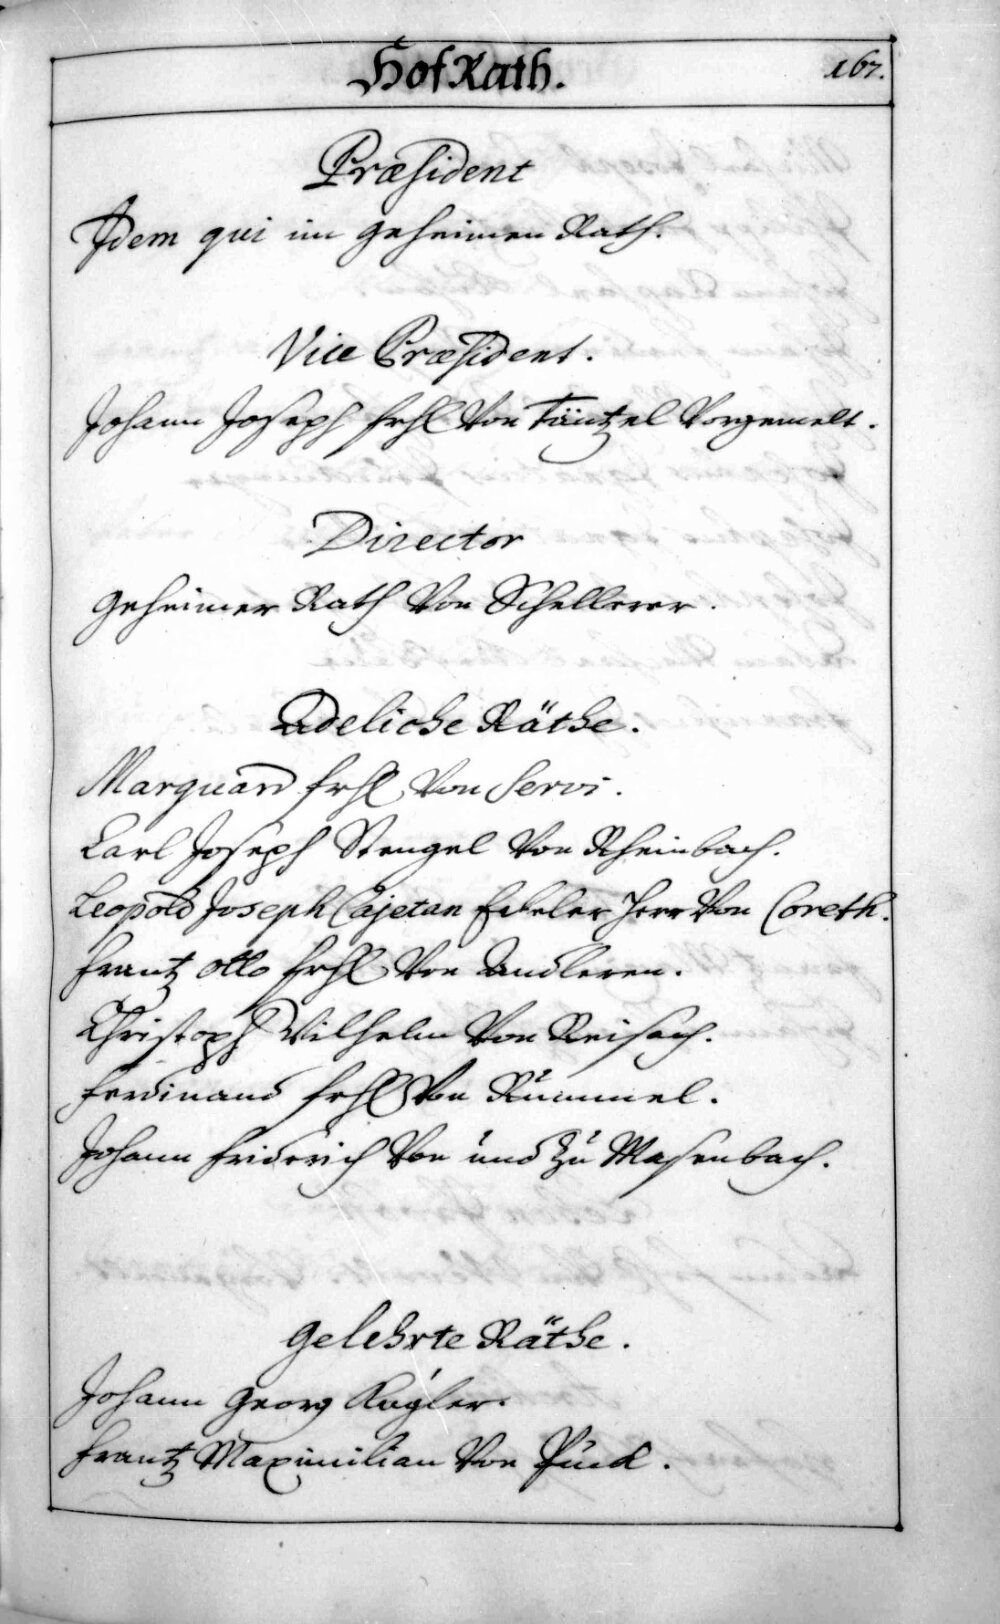 HofRath.
167.
Præsident
Idem qui im geheimen Rath.
Vice Præsident.
Johann Joseph frhl Von Täntzel Vorgemelt.
Director
geheimer Rath Von Schellerer.
Adeliche Räthe.
Marquard frhl Von Servi.
Carl Joseph Stengel Von Rheinbach.
Leopold Joseph Cajetan Edeler Herr Von Coreth.
frantz otto frhl Von Andleren.
Christoph Wilhelm Von Reisach.
ferdinand frhl Von Rummel.
Johann friderich Von und Zu Masenbach.
gelehrte Räthe.
Johann georg Kögler.
frantz Maximilian Von